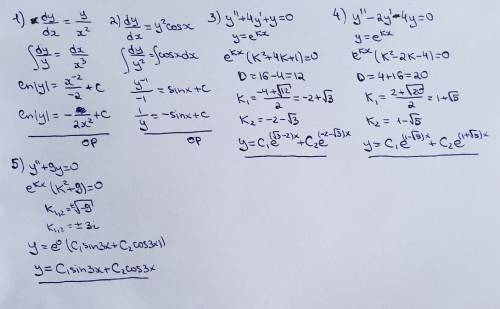 1) x dy/dx = y/x²
∫ dy/y = dx/x³
ln|y| = x⁻²/-2 + C
ln|y| = - /2x² + C
OP
2) dy/dx = y² cosx
∫ dy/y² = ∫cosxdx
y⁻¹/-1 = sinx + C
1/y = -sinx + C
OP
3) y'' + 4y' + y = 0
y = e^kx
e^kx (k² + 4k + 1) = 0
D = 16 - 4 = 12
k₁ = -4 + √12/2 = -2 + √3
k₂ = -2 - √3
y = C₁e^(√3-2)x + C₂e^(-2-√3)x
4) y'' - 2y' - 4y = 0
y = e^kx
e^kx (k² - 2k - 4) = 0
D = 4 + 16 = 20
k₁ = 2 + √20/2 = 1 + √5
k₂ = 1 - √5
y = C₁e^(1-√5)x + C₂e^(1+√5)x
5) y'' + 9y = 0
e^kx (k² + 9) = 0
k₁,₂ = √-9
k₁,₂ = ± 3i
y = e⁰ (C₁ sin3x + C₂ cos3x)
y = C₁ sin3x + C₂ cos3x